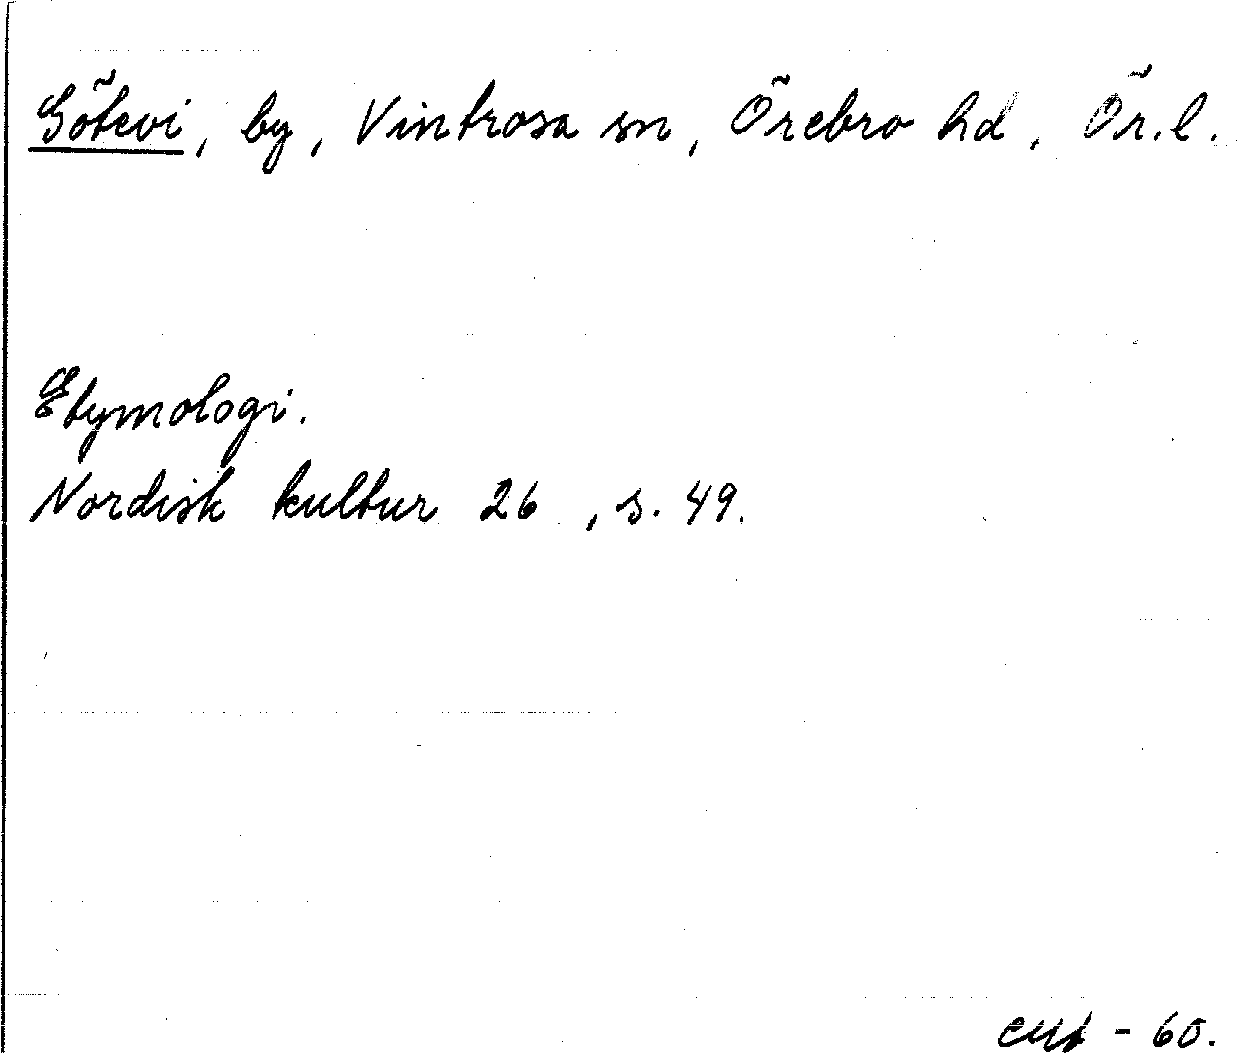 Götevi, by, Vintrosa sn, Örebro hd, Ör.l.
Etymologi.
Nordisk kultur 26, s. 49.
- 60.